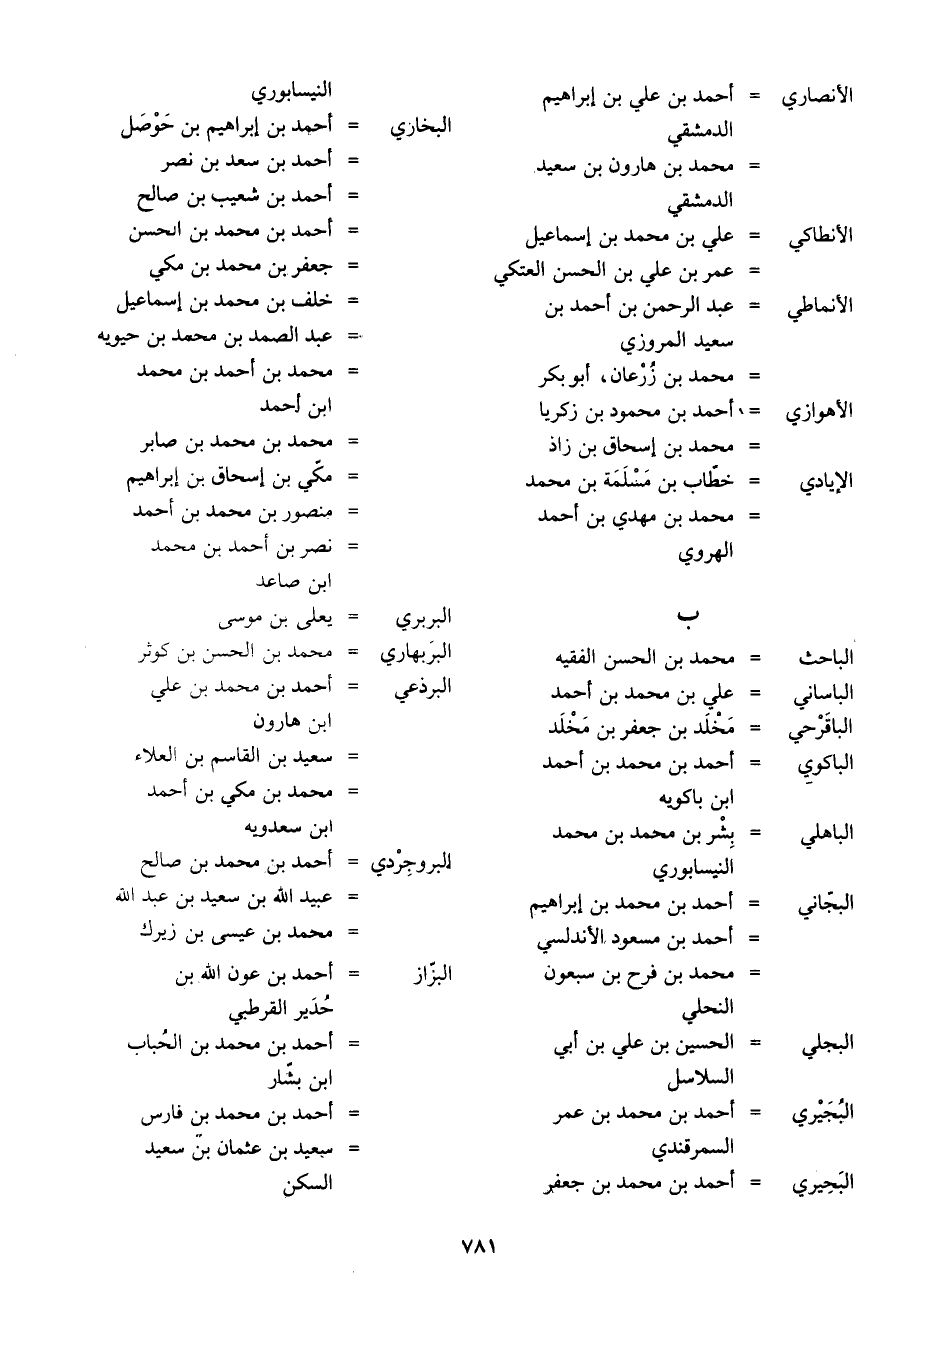 الأنصاري = أحمد بن علي بن إبراهيم
الدمشقي
= محمد بن هارون بن سعيد
الدمشقي
الأنطاكي = علي بن محمد بن إسماعيل
= عمر بن علي بن الحسن العتكي
الأنماطي = عبد الرحمن بن أحمد بن
سعيد المروزي
= محمد بن زُرْعان، أبو بكر
الأهوازي = أحمد بن محمود بن زكريا
= محمد بن إسحاق بن زاذ
الإيادي = خطّاب بن مَسْلَمَة بن محمد
= محمد بن مهدي بن أحمد
الهروي
ب
الباحث = محمد بن الحسن الفقيه
الباساني = علي بن محمد بن أحمد
الباقَرْحي = مَخْلَد بن جعفر بن مَخْلَد
الباكوي = أحمد بن محمد بن أحمد
ابن باكويه
الباهلي = بِشْر بن محمد بن محمد
النيسابوري
البجّاني = أحمد بن محمد بن إبراهيم
= أحمد بن مسعود الأندلسي
= محمد بن فرح بن سبعون
النحلي
البجلي = الحسين بن علي بن أبي
السلاسل
البُجَيْري = أحمد بن محمد بن عمر
السمرقندي
البَحِيري = أحمد بن محمد بن جعفر
النيسابوري
البخاري = أحمد بن إبراهيم بن حَوْصَل
= أحمد بن سعد بن نصر
= أحمد بن شعيب بن صالح
= أحمد بن محمد بن الحسن
= جعفر بن محمد بن مكي
= خلف بن محمد بن إسماعيل
= عبد الصمد بن محمد بن حيويه
= محمد بن أحمد بن محمد
ابن أحمد
= محمد بن محمد بن صابر
= مكّي بن إسحاق بن إبراهيم
= منصور بن محمد بن أحمد
= نصر بن أحمد بن محمد
ابن صاعد
البربري = يعلى بن موسى
البَربهاري = محمد بن الحسن بن كوثر
البرذعي = أحمد بن محمد بن علي
ابن هارون
= سعيد بن القاسم بن العلاء
= محمد بن مكي بن أحمد
ابن سعدويه
البروجِرْدي = أحمد بن محمد بن صالح
= عبيد الله بن سعيد بن عبد الله
= محمد بن عيسى بن زيرك
البزّاز = أحمد بن عون الله بن
حُدَير القرطبي
= أحمد بن محمد بن الحُباب
ابن بشّار
= أحمد بن محمد بن فارس
= سعيد بن عثمان بن سعيد
السكن
٧٨١